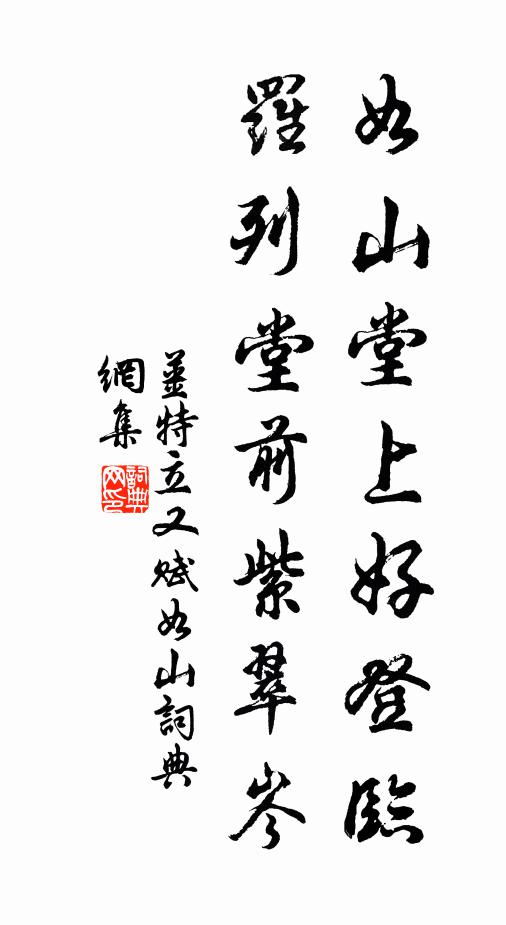 如山堂上好登臨
羅列堂前紫翠岑
姜特立又賦如山詞典
網集
詞典
网印